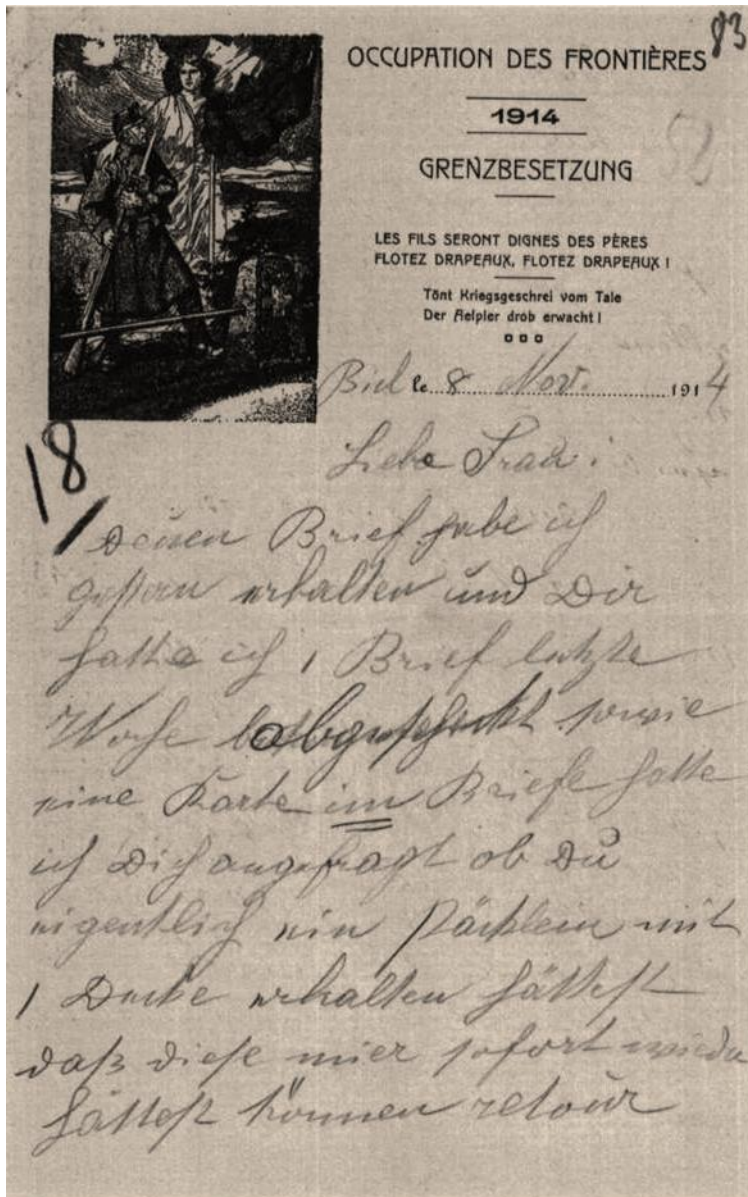 83
OCCUPATION DES FRONTIÈRES
1914
52
GRENZBESETZUNG
LES FILS SERONT DIGNES DES PÈRES
FLOTEZ DRAPEAUX, FLOTEZ DRAPEAUX !
Tönt Kriegsgeschrei vom Tale
Der Aelpler drob erwacht !
Biel le 8 Nov. 1914
Liebe Frau !
18
Deinen Brief habe ich
gestern erhalten und Dir
hatte ich 1 Brief letzte
Woche abgeschickt sowie
eine Karte im Briefe hatte
ich Dich angefragt ob Du
eigentlich ein Päcklein mit
1 Decke erhalten hättest
daß diese mier sofort wieder
hättest können retour